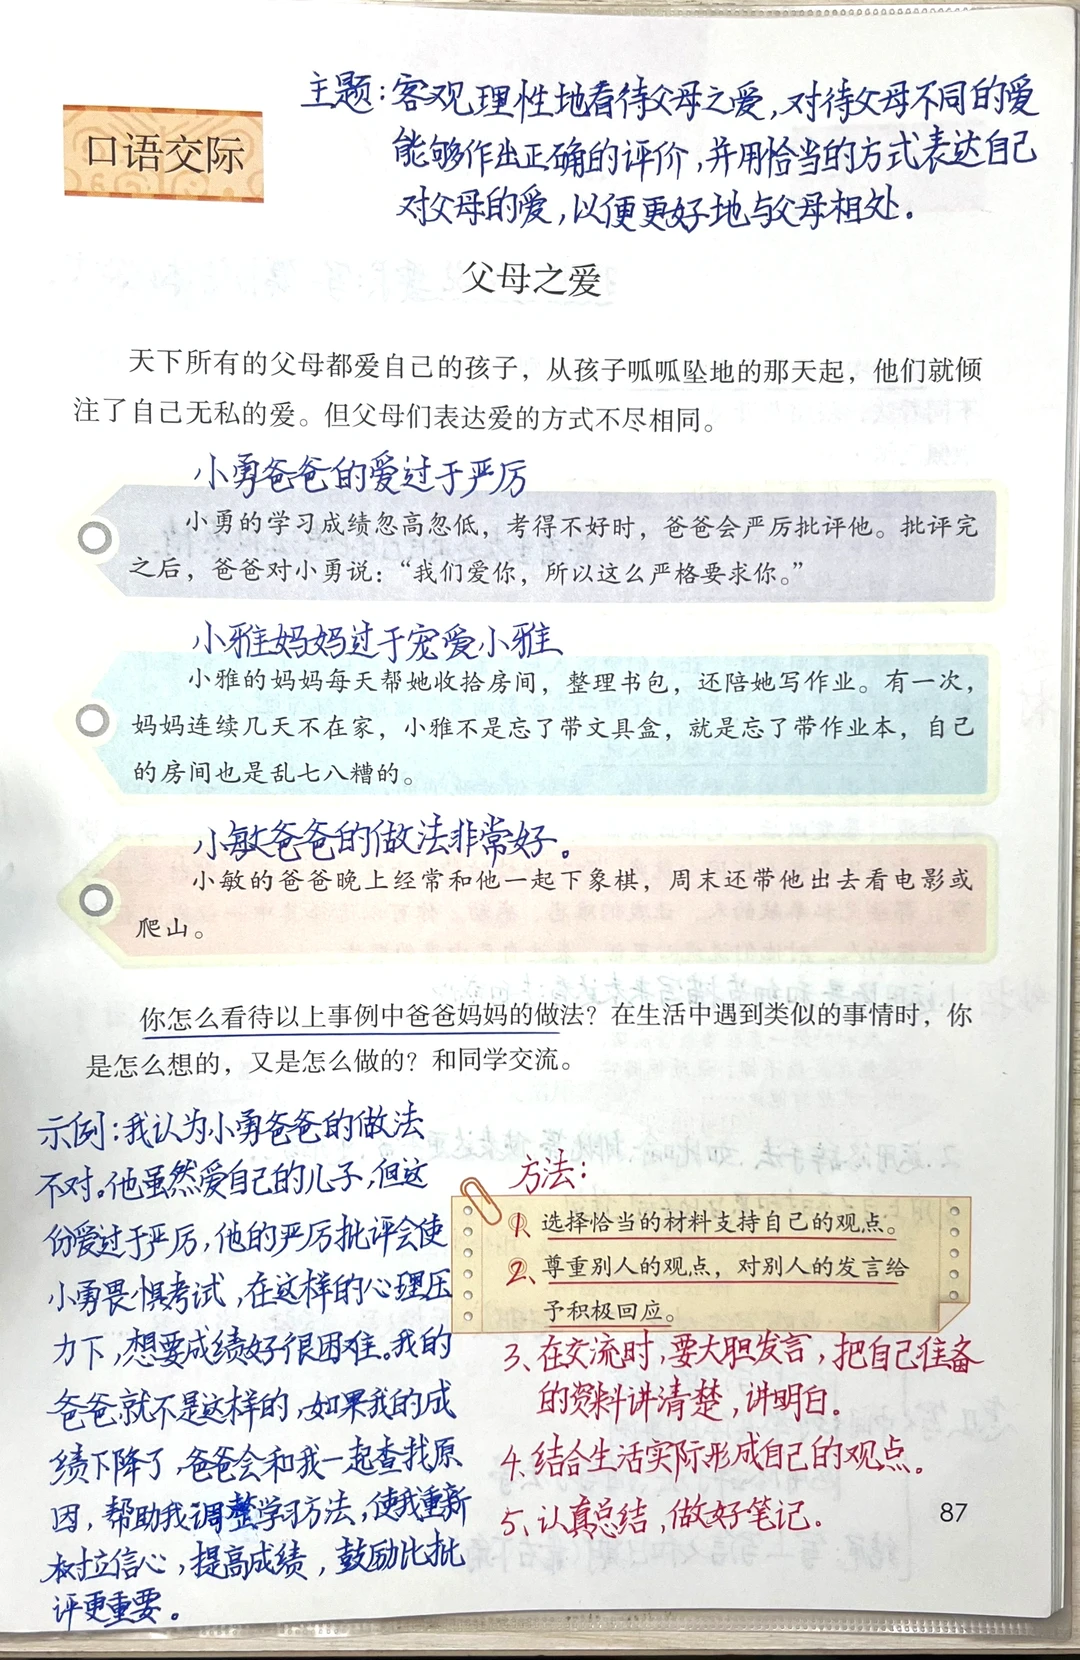 主题：客观理性地看待父母之爱，对待父母不同的爱
能够作出正确的评价，并用恰当的方式表达自己
对父母的爱，以便更好地与父母相处。
口语交际
父母之爱
天下所有的父母都爱自己的孩子，从孩子呱呱坠地的那天起，他们就倾
注了自己无私的爱。但父母们表达爱的方式不尽相同。
小勇爸爸的爱过于严厉
小勇的学习成绩忽高忽低，考得不好时，爸爸会严厉批评他。批评完
之后，爸爸对小勇说：“我们爱你，所以这么严格要求你。”
小雅妈妈过于宠爱小雅
小雅的妈妈每天帮她收拾房间，整理书包，还陪她写作业。有一次，
妈妈连续几天不在家，小雅不是忘了带文具盒，就是忘了带作业本，自己
的房间也是乱七八糟的。
小敏爸爸的做法非常好。
小敏的爸爸晚上经常和他一起下象棋，周末还带他出去看电影或
爬山。
你怎么看待以上事例中爸爸妈妈的做法？在生活中遇到类似的事情时，你
是怎么想的，又是怎么做的？和同学交流。
示例：我认为小勇爸爸的做法
不对。他虽然爱自己的儿子，但这
份爱过于严厉，他的严厉批评会使
小勇畏惧考试，在这样的心理压
力下，想要成绩好很困难。我的
爸爸就不是这样的，如果我的成
绩下降了，爸爸会和我一起查找原
因，帮助我调整学习方法，使我重新
树立信心，提高成绩，鼓励比批
评更重要。
方法：
1、选择恰当的材料支持自己的观点。
2、尊重别人的观点，对别人的发言给
予积极回应。
3、在交流时，要大胆发言，把自己准备
的资料讲清楚，讲明白。
4、结合生活实际形成自己的观点。
5、认真总结，做好笔记。
87